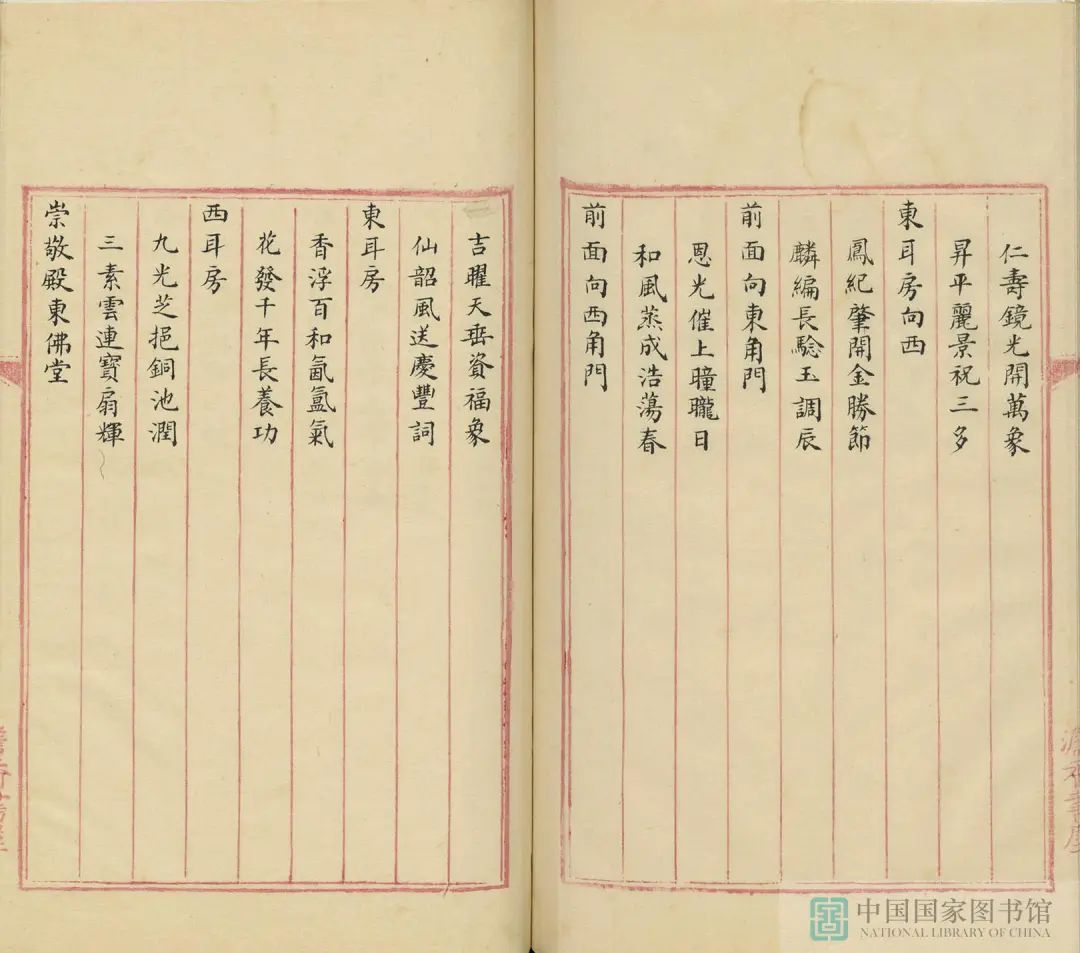 仁壽鏡光開萬象
昇平麗景祝三多
東耳房向西
鳳紀肇開金勝節
麟編長騐玉調辰
前面向東角門
恩光催上曈曨日
和風蒸成浩蕩春
前面向西角門
吉曜天垂資福象
仙韶風送慶豐詞
東耳房
香浮百和氤氳氣
花發千年長養功
西耳房
九光芝挹銅池潤
三素雲連寶扇輝
崇敬殿東佛堂
中国国家图书馆
NATIONAL LIBRARY OF CHINA